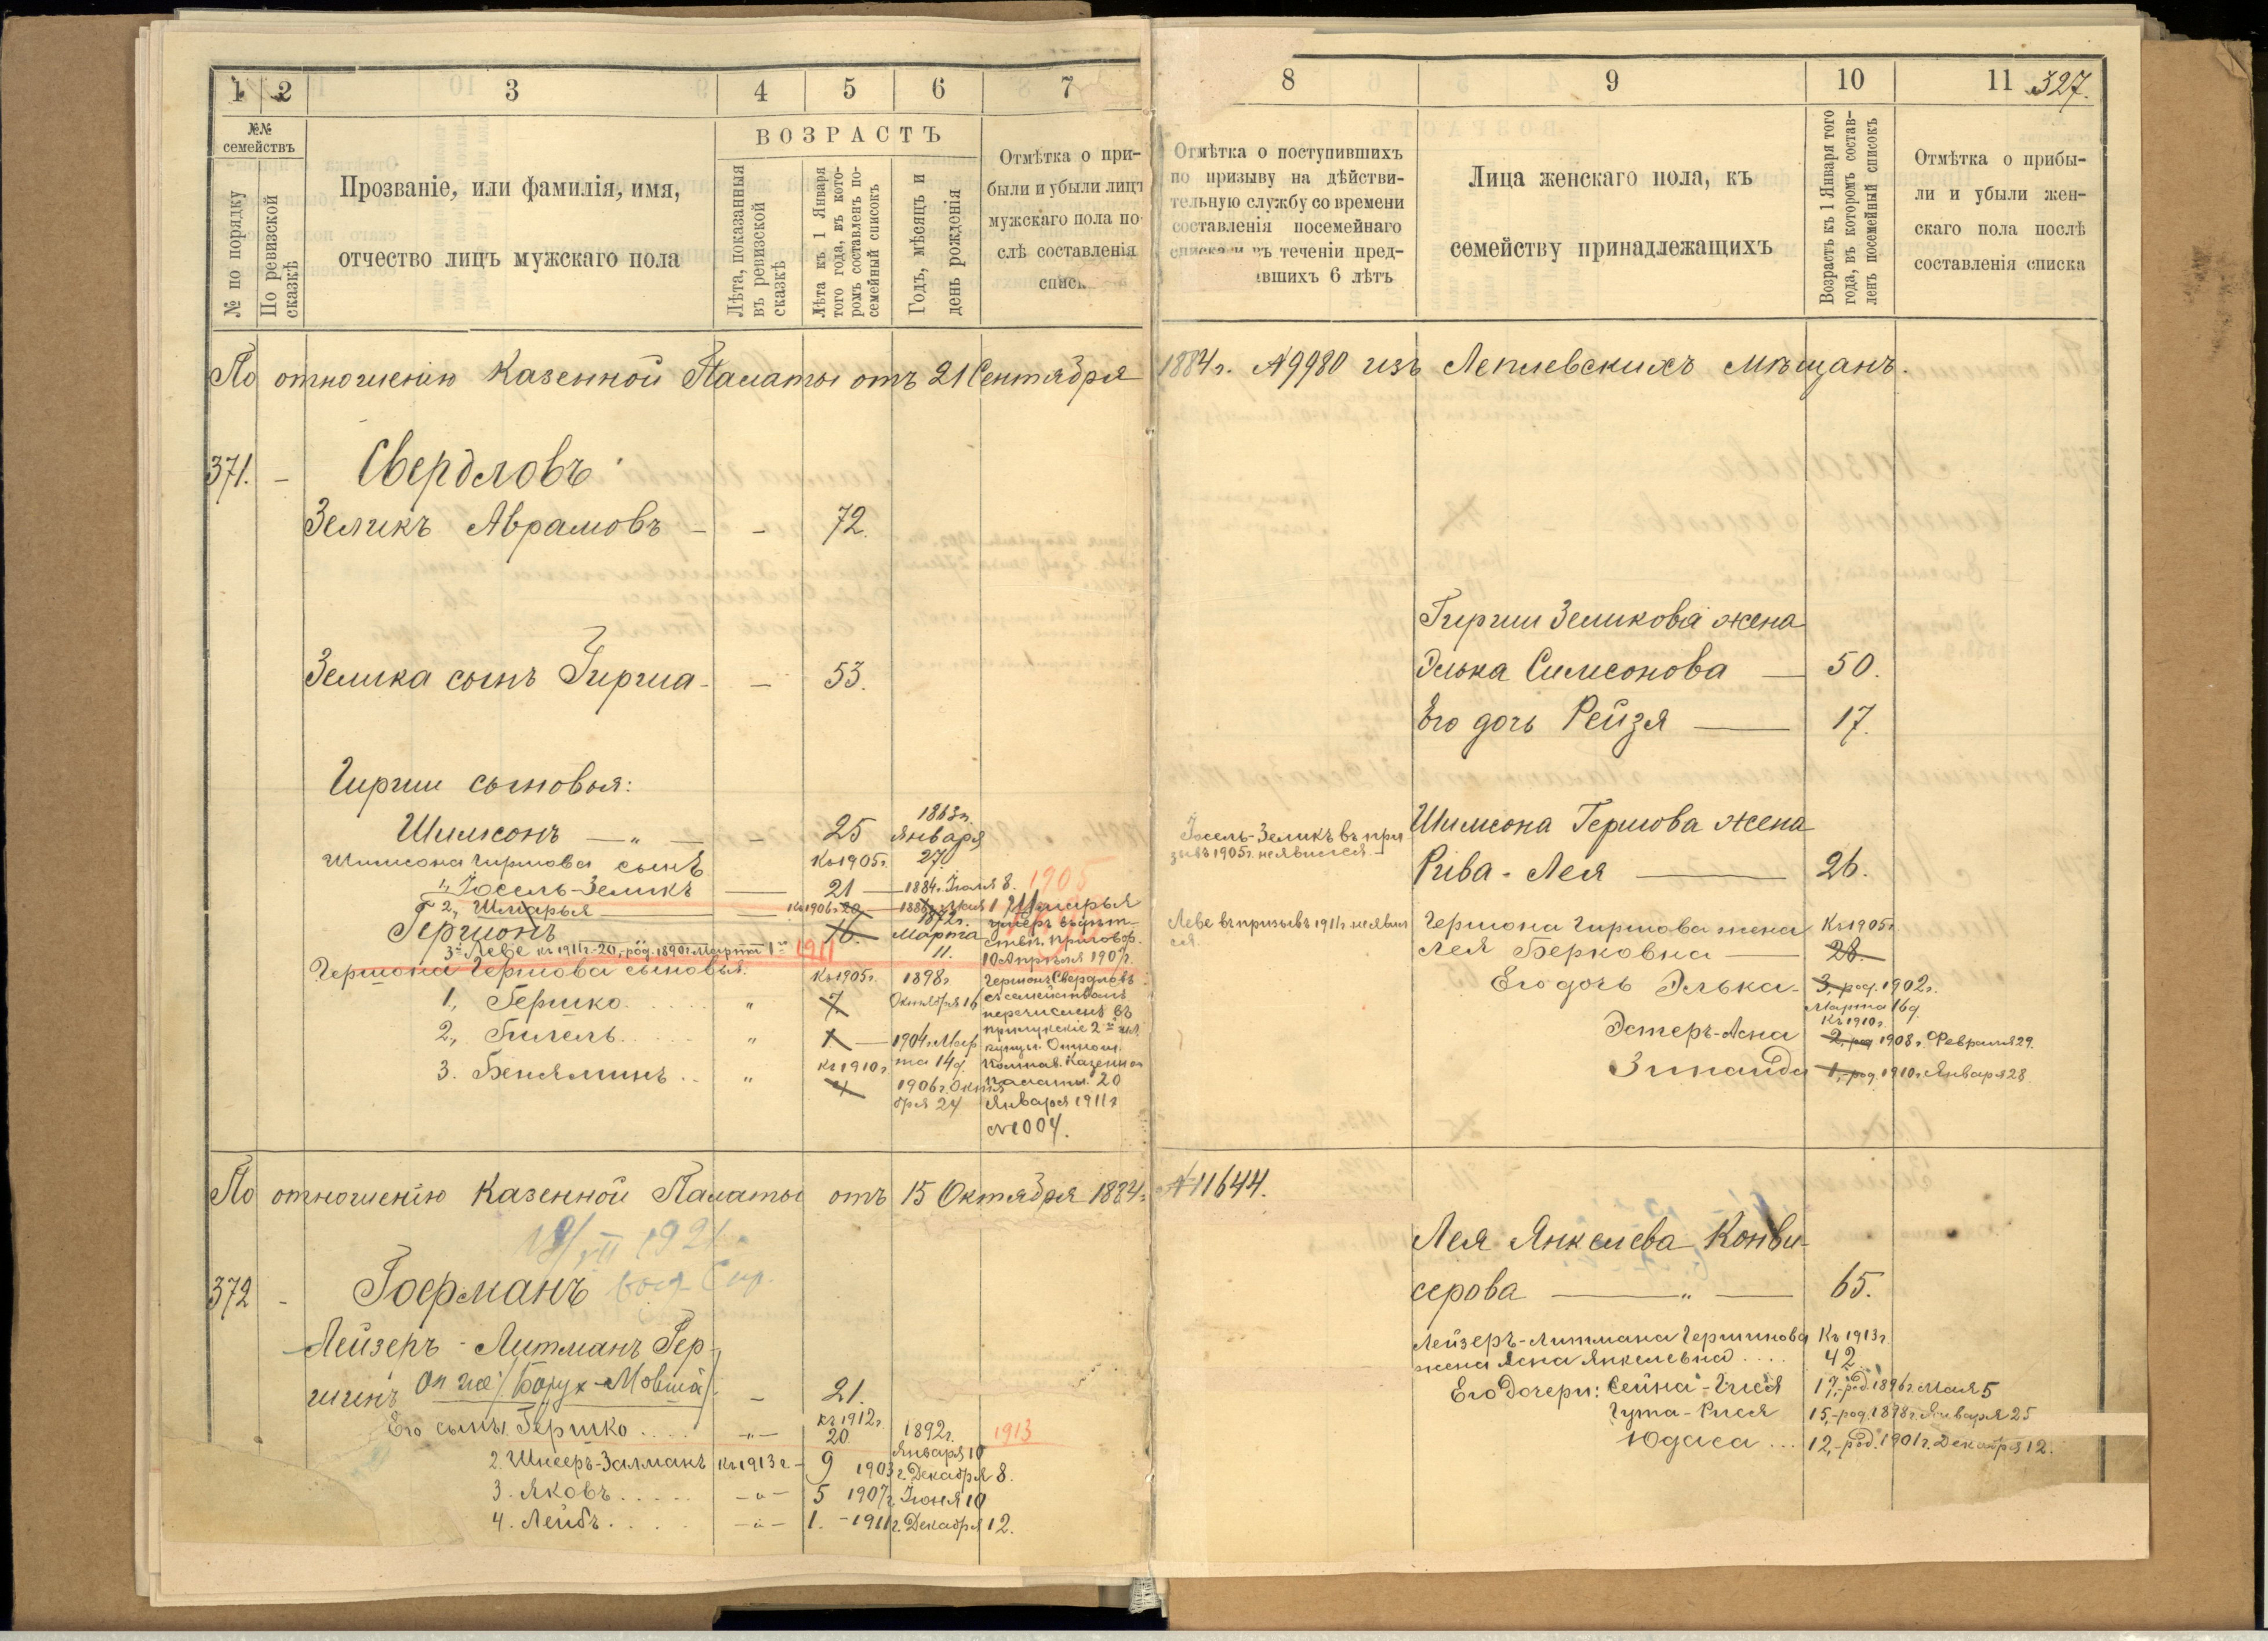 1 2 3 4 5 6 7 8 9 10 11 327.
№№ семействъ
№ по порядку
По ревизской сказкѣ
Прозваніе, или фамилія, имя,
отчество лицъ мужскаго пола
ВОЗРАСТЪ
Лѣта, показанныя
въ ревизской
сказкѣ
Лѣта къ 1 Января
того года, въ кото-
ромъ составленъ по-
семейный списокъ
Годъ, мѣсяцъ и
день рожденія
Отмѣтка о при-
были и убыли лицъ
мужскаго пола по-
слѣ составленія
списк
Отмѣтка о поступившихъ
по призыву на дѣйстви-
тельную службу со времени
составленія посемейнаго
списка и въ теченіи пред-
авшихъ 6 лѣтъ
Лица женскаго пола, къ
семейству принадлежащихъ
Возрастъ къ 1 Января того
года, въ которомъ состав-
ленъ посемейный списокъ
Отмѣтка о прибы-
ли и убыли жен-
скаго пола послѣ
составленія списка
По отношенію Казенной Палаты отъ 21 Сентября 1884 г. № 9980 изъ Лепельскихъ мѣщанъ.
371. - Свердловъ
Зеликъ Аврамовъ - - 72.
Гирши Зеликова жена
Зелика сынъ Гирша - - 53.
Элька Симсонова — 50.
Его дочь Рейзя — 17.
Гирши сыновья:
Шимсонъ — " — - 25 1863 г. Января 27
Шимсона Гиршова сынъ Къ 1905 г.
1, Іосель-Зеликъ — 21 — 1884 г. Іюля 8. 1905
2, Шмарья — Къ 1906 г. 20
Гершонъ 16. 1872 г. Марта 11.
3й Лебе къ 1911 г. - 20, род. 1890 г. Марта 1го 1911
Шмарья
умеръ
10 Апрѣля 1907 г.
Гершона Гершова сыновья. Къ 1905 г.
1, Гершко " 7 1898 г. Октября 16
2, Гилель " 1 — 1904 г. Марта 14 д.
3. Беняминъ " Къ 1910 г. 4 1906 г. Октября 24
Гершонъ Свердловъ
съ семействомъ
перечисленъ въ
прилукскіе 2й гил.
купцы. Отнош.
Полтав. Казенной
Палаты 20
Января 1911 г.
№ 1004.
Іосель-Зеликъ въ при-
зывъ 1905 г. не явился.
Лебе въ призывъ 1911 г. не явил-
ся.
Шимсона Гершова жена
Рива-Лея — 26.
Гершона Гиршова жена Къ 1905 г.
Лея Берковна — 28.
Его дочь Элька - 3, род. 1902 г.
Марта 16 д.
Къ 1910 г.
Эстеръ-Асна 2, род 1908 г. Февраля 29.
Зинаида 1, - род. 1910 г. Января 28
По отношенію Казенной Палаты отъ 15 Октября 1884 г. № 11644.
372 - Гоерманъ
Лейзеръ-Литманъ Гер-
шинъ Он же /Борух-Мовша/. - 21.
Его сыны. Гершко " къ 1912 г. 20 1892 г. Января 10 1913
2. Шнееръ-Залманъ къ 1913 г. - 9 1903 г. Декабря 8.
3. Яковъ - " - 5 1907 г. Іюня 10
4. Лейбъ - " - 1. - 1911 г. Декабря 12.
Лея Янкелева Конви-
серова — " — 65.
Лейзеръ-Литмана Гершинова Къ 1913 г.
жена Асна Янкелевна 42
Его дочери: Сейна-Гися 17, - род. 1896 г. Мая 5
Гута-Рися 15, - род. 1898 г. Января 25
Юдаса 12, - род. 1901 г. Декабря 12.